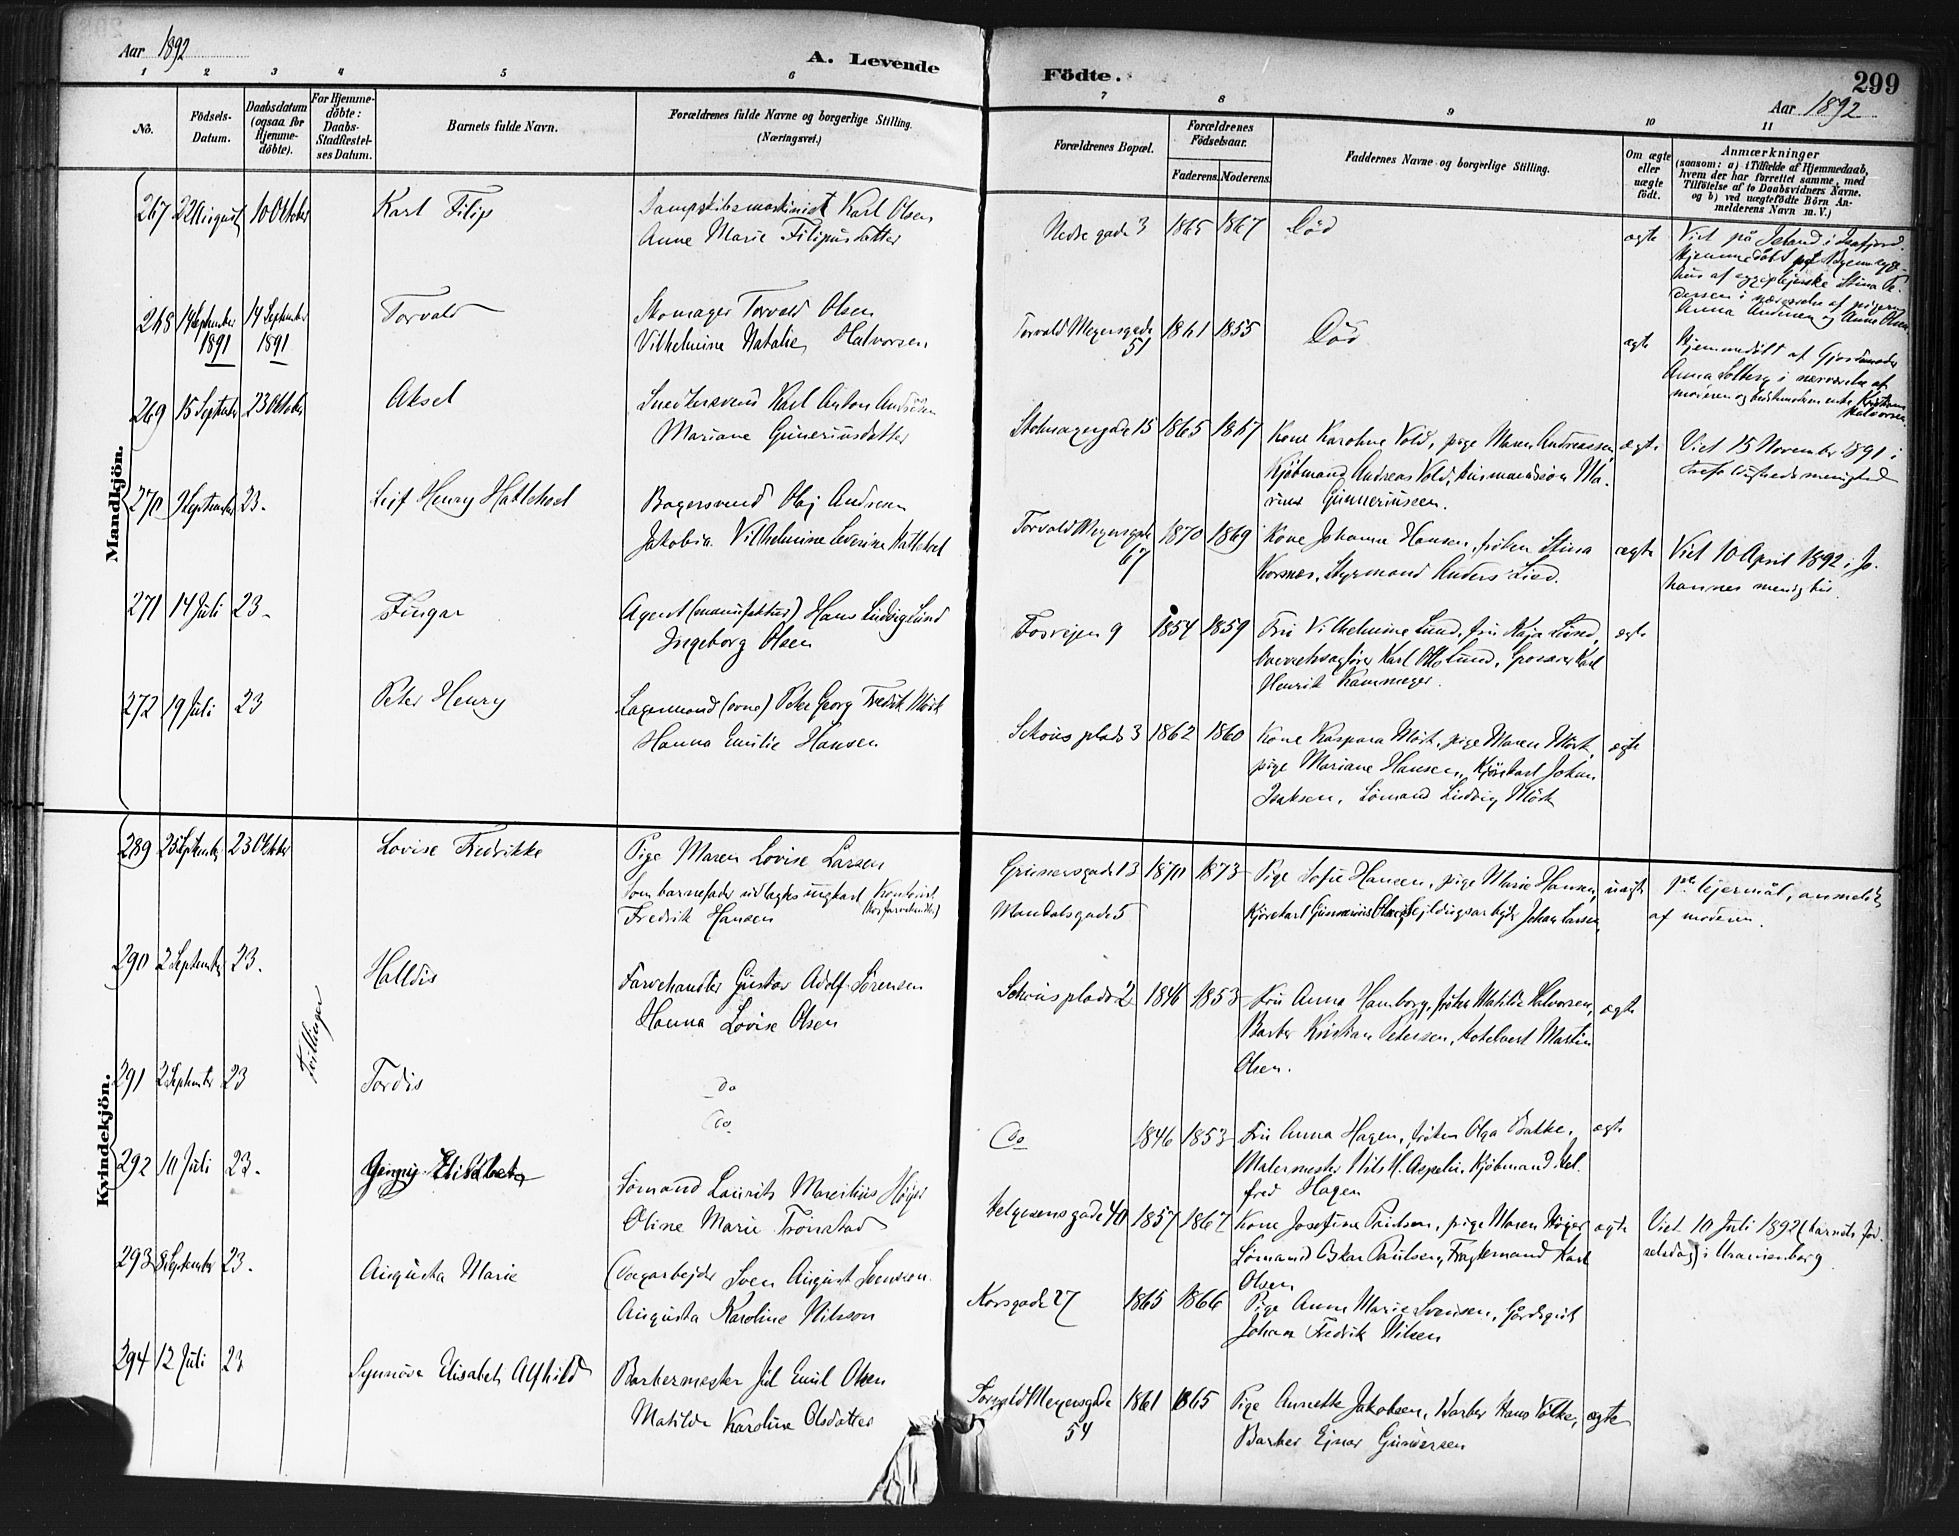 Aar 1892
A. Levende
Födte.
299
Aar 1892
1 2 3 4 5 6 7 8 9 10 11
No.
Födsels-
Datum.
Daabsdatum
(ogsaa for
Hjemme-
döbte).
For Hjemme-
döbte:
Daabs-
Stadfæstel-
ses Datum.
Barnets fulde Navn.
Forældrenes fulde Navne og borgerlige Stilling.
(Næringsvei.)
Forældrenes Bopæl.
Forældrenes
Födselsaar.
Faderens. Moderens.
Faddernes Navne og borgerlige Stilling.
Om ægte
eller
uægte
födt.
Anmærkninger
(saasom: a) i Tilfælde af Hjemmedaab,
hvem der har forrettet samme, med
Tilföielse af to Daabsvidners Navne.
og b) ved uægtefödte Börn An-
melderens Navn m. V.)
Mandkjön.
267 22 August 10 Oktober Karl Filip
Dampskibsmaskinist Karl Olsen
Anne Marie Filipusdatter
Nedre gade 3 1865 1867 Död ægte
Viet på Island i Isafjord.
Hjemmedöbt
hus af sygeplejerske Stina Pe-
dersen i nærværelse af pigerne
Anna Andersen og Anne Olsen
268 14 September 1891 14 September 1891 Torvald
Skomager Torvald Olsen
Vilhelmine Natalie Halvorsen
Torvald Meyersgade 51 1861 1855 Död ægte
Hjemmedöbt af Gjordemoder
Anna Solberg i nærværelse af
moderen og bedstemoderen enke
Halvorsen.
269 15 September 23 Oktober Aksel
Snedkersvend Karl Anton Andersen
Mariane Guneriusdatter
Skomagergade 15 1865 1867
Kone Karoline Vold, pige Maren Andreassen,
Kjöbmand Andreas Vold, husmandssön Ma-
rius Gunneriussen.
ægte
Viet 15 November 1891 i
menighed
270 9 September 23. Leif Henry Hatlehol
Bagersvend Olaj Andresen
Jakobia Vilhelmine Severine Hatlehol
Torvald Meyersgade 67 1870 1869
Kone Johanne Hansen, fröken Stina
Korsnes, Styrmand Anders Lied.
ægte
Viet 10 April 1892 i Jo-
hannes menighed.
271 14 Juli 23. Fingar
Agent (manufaktur) Hans Ludvig Lund
Ingeborg Olsen
Fosvejen 9 1854 1859
Fru Vilhelmine Lund, fru Kaja Lund,
Overretssagförer Karl Otto Lund, Grosserer Karl
Henrik Kammeyer.
ægte
272 19 Juli 23 Peter Henry
Lagermand (ovne) Peter Georg Fredrik Mörk
Hanna Emilie Hansen
Schous plads 3 1862 1860
Kone Kaspara Mörk, pige Maren Mörk,
pige Mariane Hansen, Kjörekarl Johan
Isaksen, Sömand Ludvig Mörk
ægte
Kvindekjön.
289 25 September 23 Oktober Lovise Fredrikke
Pige Maren Lovise Larsen
Som barnefader udlagdes ungkarl Kontorist
Fredrik Hansen (hos farvehandler)
Grünersgade 13 1870 1873
Mandalsgade 5
Pige Sofie Hansen, pige Marie Hansen,
Kjörekarl Gunnerius Olsen, Johan Larsen
uægte
1ste lejermål, anmeldt
af moderen.
290 2 September 23. Halldis
Tvillinger
Farvehandler Gustav Adolf Sörensen
Hanna Lovise Olsen
Schous plads 2 1846 1853
Fru Anna Hamborg, fröken Matilde Halvorsen,
Barber Kristian Petersen, Hotelvert Martin
Olsen.
ægte
291 2 September 23 Tordis
do
do
Do 1846 1853
Fru Anna Hagen, fröken Olga Bakke,
Malermester Nils H. Aspelin, Kjöbmand Hel-
fred Hagen
ægte
292 10 Juli 23. Jenny Elisabet
Sömand Laurits Marelius Höjer
Oline Marie Tronstad
Helgesensgade 40 1857 1867
Kone Josefine Paulsen, pige Maren Höjer
Sömand Oskar Paulsen, Fragtemand Karl
Olsen
ægte
Viet 10 Juli 1892 (barnets föd-
selsdag) i Uranienborg.
293 8 September 23. Augusta Marie
Dagarbejder Sven August Svensson
Augusta Karoline Nilsson
Korsgade 27 1865 1866
Pige Anna Marie Svensen, Gårdsgut
Johan Fredrik Nilsen
294 12 Juli 23 Synnöve Elisabet Alfhild
Barbermester Jul Emil Olsen
Matilde Karoline Olsdatter
Torvald Meyersgade 54 1861 1865
Pige Annette Jakobsen, Barber Hans Fölke,
Barber Ejnar Gundersen
ægte